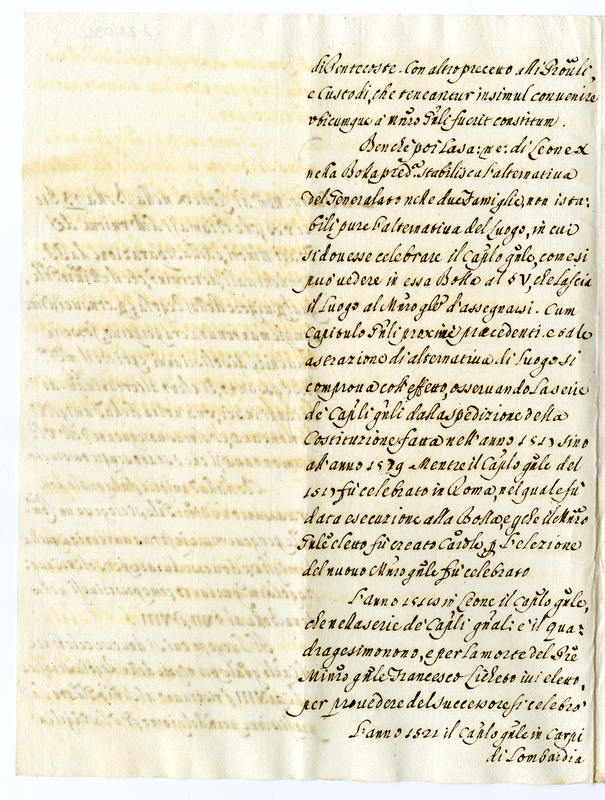 di Pentecoste. Con altro precetto alli Prouli,
e Custodi, che teneantur insimul convenire
vbicumque a Mñro Gñli fuerit constitum.
Benche poi la sa: me: di Leone X
nella Bolla pred.ª stabilisca l'alternativa
del Generalato nelle due Famiglie, non ista-
bili pure l'alternativa del Luogo, in cui
si douesse celebrare il Capl̃o gñle, come si
può vedere in essa Bolla al § V, che lascia
il Luogo al Mñro gñle d'assegnarsi. Cum
Capitulo Gñli proxime præcedenti. e tale
aserazione di alternativa di Luogo si
comprova coll'effetto, osservando la serie
de' Capl̃i gñli dalla spedizione della
Costituzione fatta nell'anno 1517 sino
all'anno 1579 Mentre il Capl̃o gñle del
1517 fù celebrato in Roma, nel quale fù
data esecuzione alla Bolla, e che il Mñro
Gñle eletto fù creato Cardle, p l'elezione
del nuovo Mñro gñle fù celebrato
L'anno 1518 in Leone il Capl̃o gñle,
che nella serie de' Capl̃i gñali è il qua-
dragesimonono, e per la morte del Pre
Minro gñle Francesco Licheto iui eletto,
per prouedere del successore si celebrò
L'anno 1521 il Capl̃o gñle in Carpi
di Lombardia